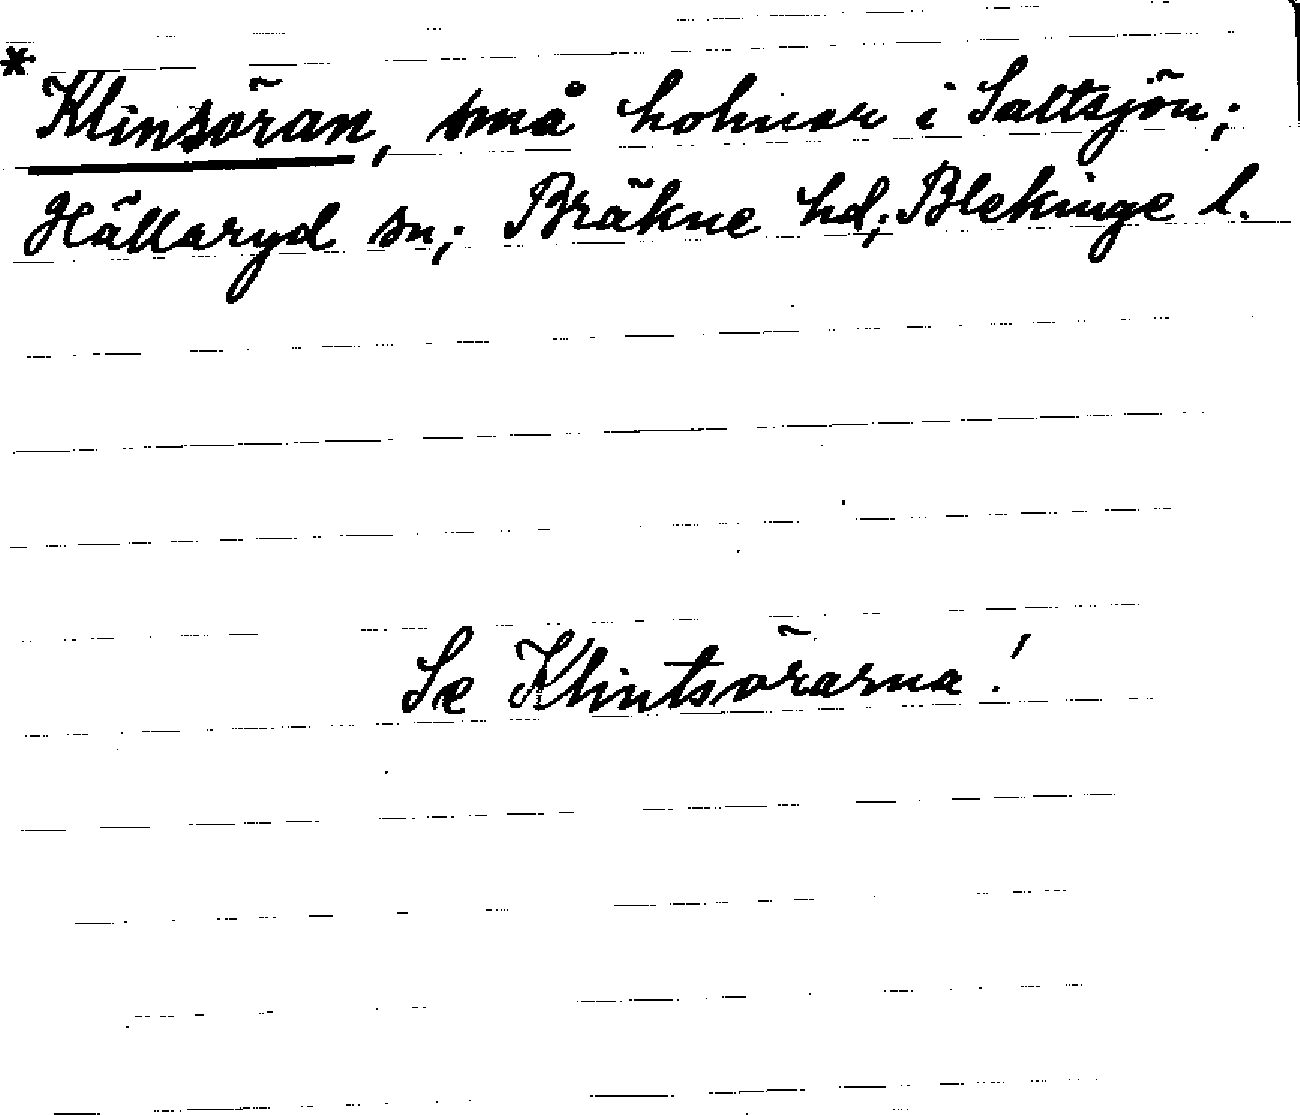 * Klinsöran, små holmar i Saltsjön;
Hällaryd sn; Bräkne hd; Blekinge l.
Se Klintsörarna!